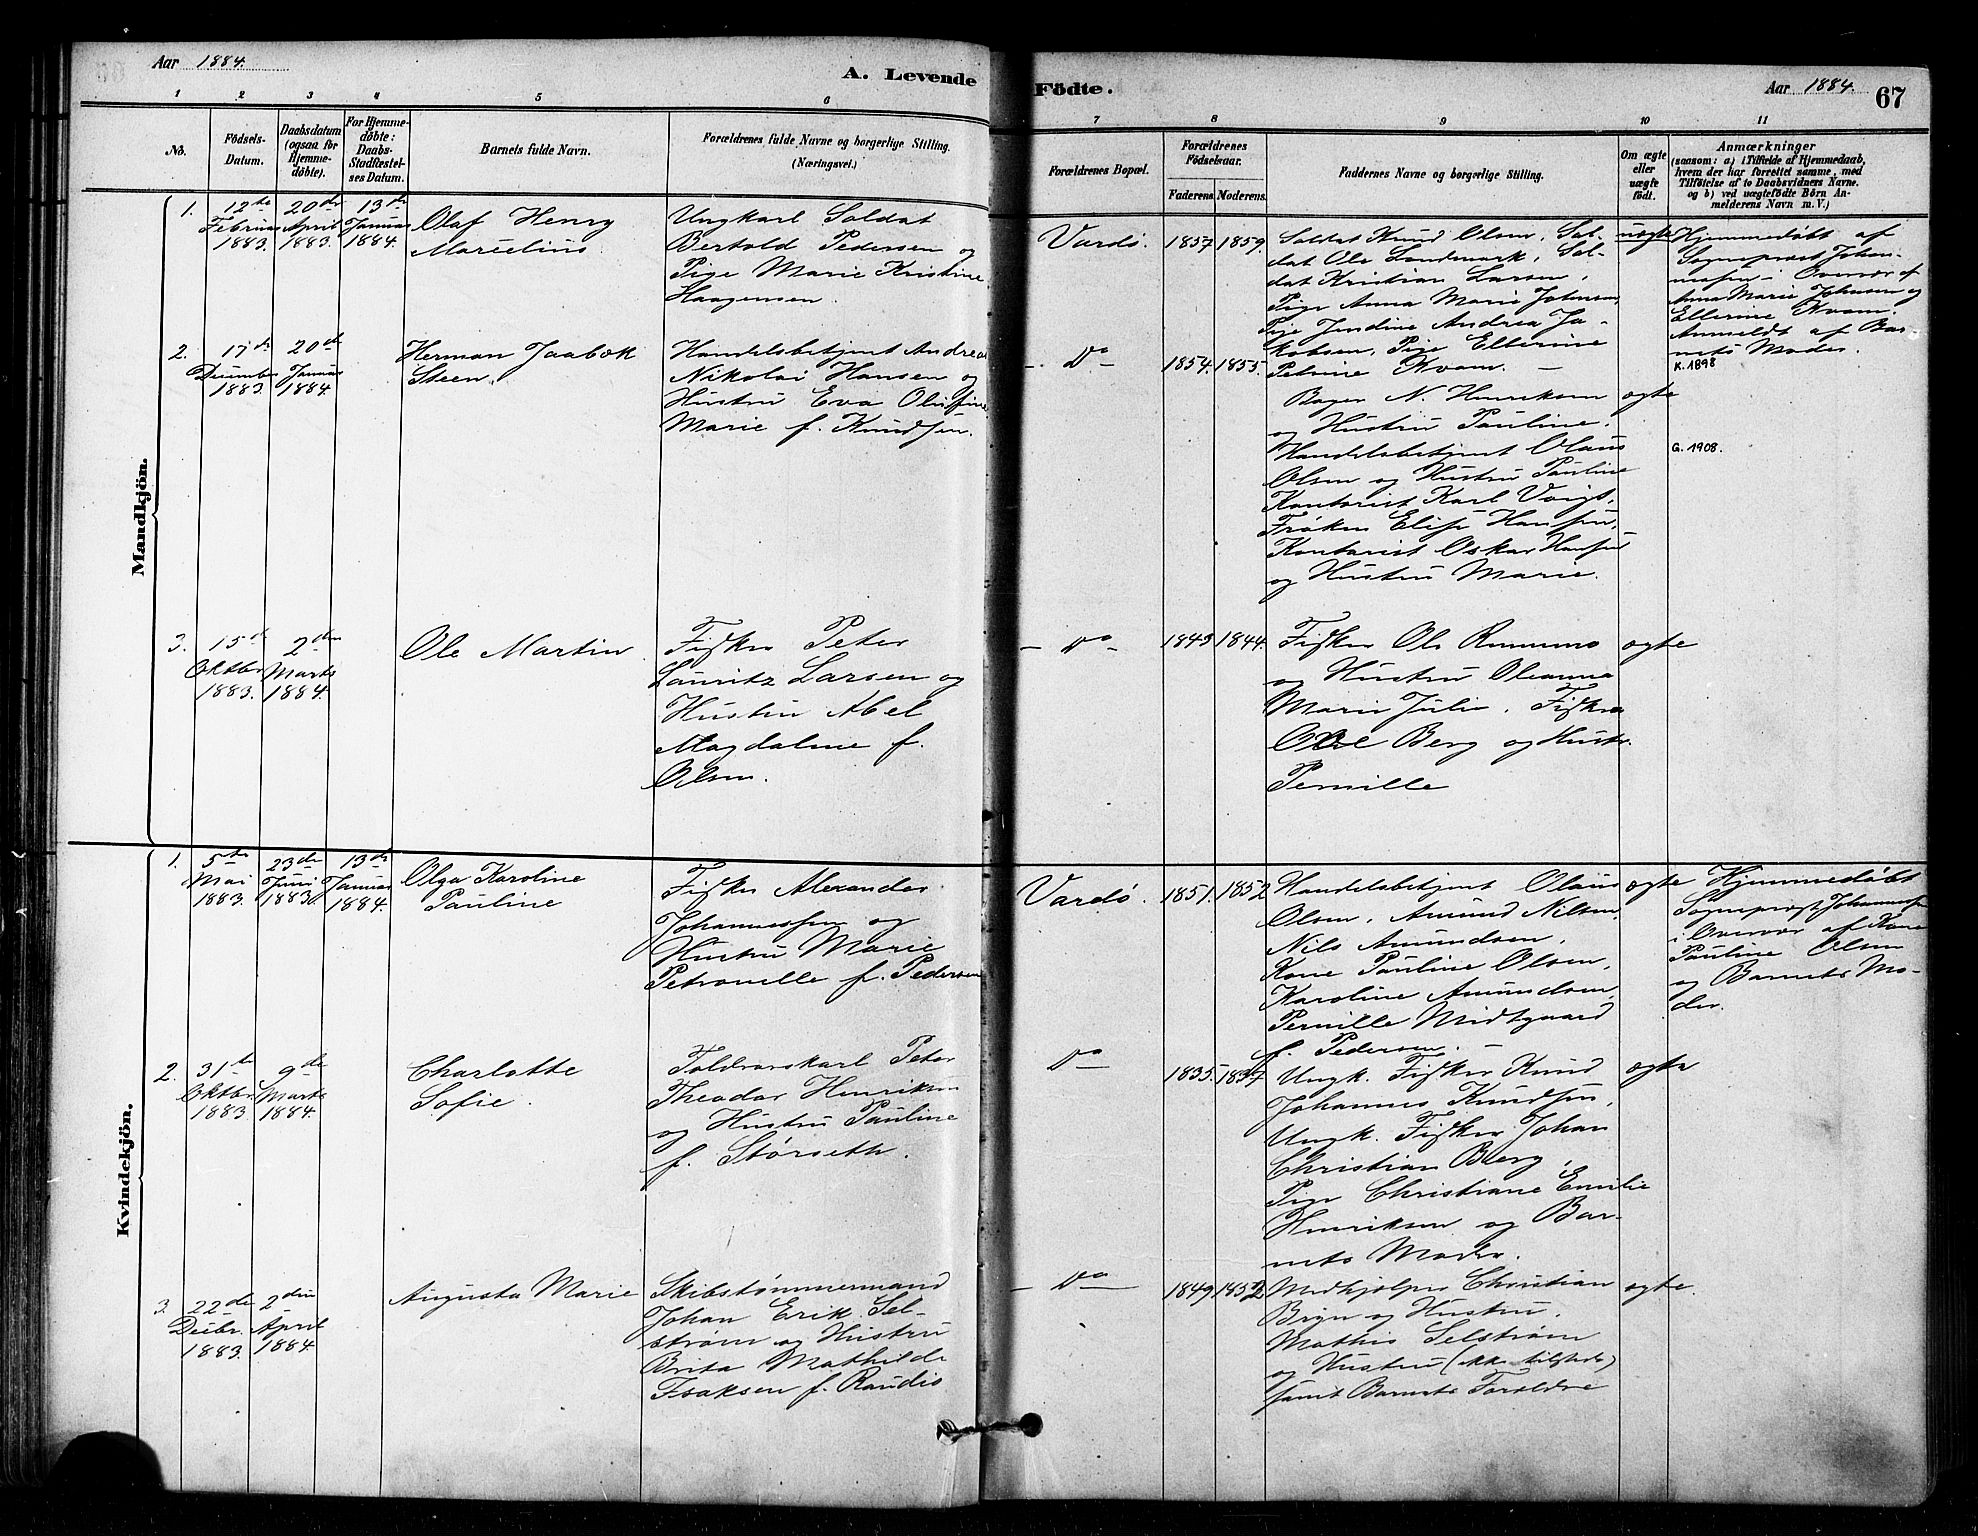 Aar 1884.
A. Levende
Födte.
Aar 1884.
67
1 2 3 4 5 6
7 8 9 10 11
No.
Födsels-
Datum.
Daabsdatum
(ogsaa for
Hjemme-
döbte).
For Hjemme-
döbte:
Daabs-
Stadfæstel-
ses Datum.
Barnets fulde Navn.
Forældrenes fulde Navne og borgerlige Stilling.
(Næringsvei.)
Forældrenes Bopæl.
Forældrenes
Födselsaar.
Faderens.
Moderens.
Faddernes Navne og borgerlige Stilling.
Om ægte
eller
uægte
födt.
Anmærkninger
(saasom: a) i Tilfælde af Hjemmedaab,
hvem der har forrettet samme, med
Tilföielse af to Daabsvidners Navne.
og b) ved uægtefödte Börn An-
melderens Navn m. V.)
Mandkjön.
1.
12te
Februar
1883.
20de
April
1883.
13de
Januar
1884.
Olaf Henry
Marcelius.
Ungkarl Soldat
Bertold Pedersen og
Pige Marie Kristine
Haagensen.
Vardö.
1857.
1859.
Soldat Knud Olsen, Sol-
dat Ole Landmark, Sol-
dat Kristian Larsen,
Pige Anna Marie Johnsen,
Pige Jensine Andrea Ja-
kobsen, Pige Ellerine
Petrine Kvam. —
uægte
Hjemmedöbt af
Sognepræst Johan-
nessen i Overvær af
Anna Marie Johnsen og
Ellerine Kvam.
Anmeldt af Bar-
nets Moder.
2.
17de
December
1883.
20de
Januar
1884.
Herman Jaabæk
Steen.
Handelsbetjent Andreas
Nikolai Hansen og
Hustru Eva Olufine
Marie f. Knudsen.
— Do —
1854.
1855.
Bager N. Henriksen
og Hustru Pauline.
Handelsbetjent Olaus
Olsen og Hustru Pauline
Kontorist Karl Voigt,
Fröken Elise Hansen,
Kontorist Oskar Hansen
og Hustru Marie.
ægte
K. 1898
G. 1908.
3.
15de
Oktbr
1883.
2den
Marts
1884.
Ole Martin.
Fisker Peter
Lauritz Larsen og
Hustru Abel
Magdalene f.
Olsen.
— Do —
1843
1844.
Fisker Ole
og Hustru Oleanna
Marie Julie. Fisker
Berg og Hustr.
Pernille
ægte
Kvindekjön.
1.
5te
Mai
1883.
23de
Juni
1883.
13de
Januar
1884.
Olga Karoline
Pauline
Fisker Alexander
Johannessen og
Hustru Marie
Petronelle f. Pedersen
Vardö.
1851.
1852
Handelsbetjent Olaus
Olsen, Amund Nilsen,
Nils Amundsen,
Kone Pauline Olsen,
Karoline Amundsen,
Pernille Midtgaard
f. Pedersen. —
ægte
Hjemmedöbt
Sognepræst Johannessen
i Overvær af Kone
Pauline Olsen
og Barnets Mo-
der.
2.
31te
Oktbr
1883.
9de
Marts
1884.
Charlotte
Sofie.
Toldrorskarl Peter
Theodor Henriksen
og Hustru Pauline
f. Störseth.
Do —
1835.
1837
Ungk. Fisker Knud
Johannes Knudsen,
Ungk. Fisker Johan
Christian Berg,
Pige Christiane Emilie
Henriksen og Bar-
nets Moder.
ægte
3.
22de
Decbr.
1883.
2den
April
1884
Augusta Marie
Skibstömmermand
Johan Erik Sel-
ström og Hustru
Brita Mathilde
Isaksen f. Raudio
— Do —
1849
1852
Medhjælper Christian
og Hustru,
Mathis Selström
og Hustru (ikke tilstede)
samt Barnets Forældre
ægte.